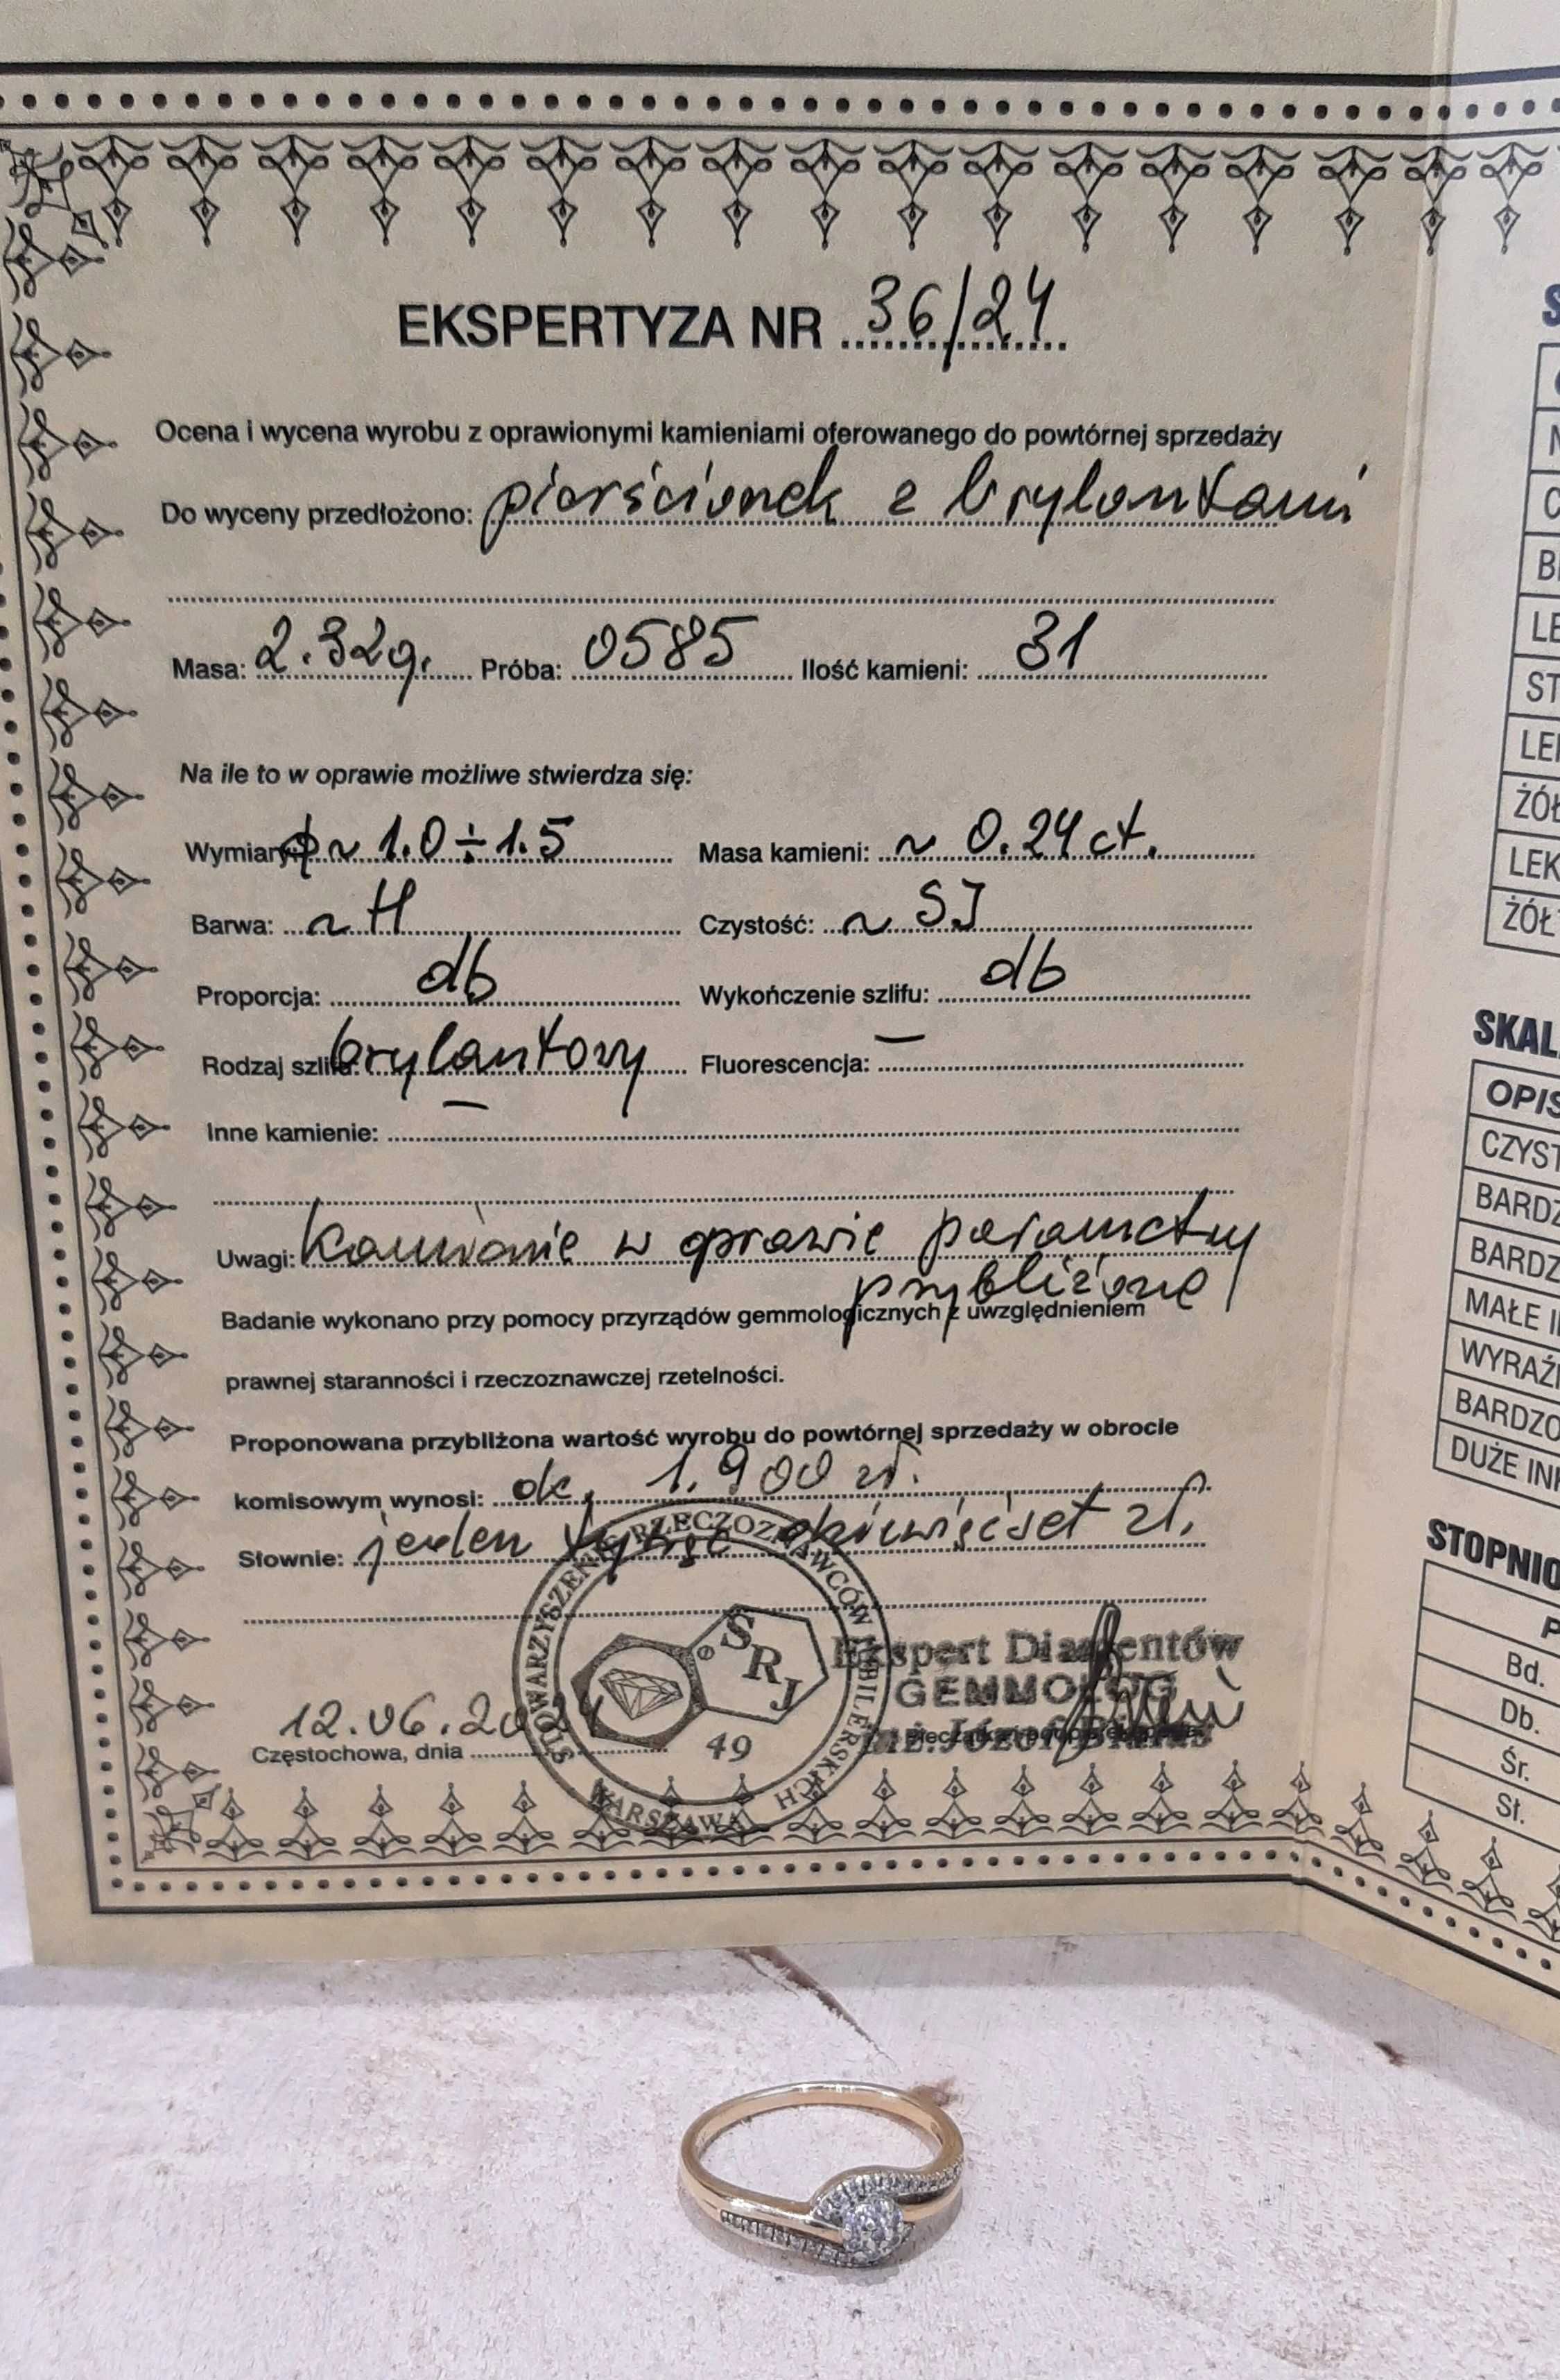 EKSPERTYZA NR 36/24
Ocena i wycena wyrobu z oprawionymi kamieniami oferowanego do powtórnej sprzedaży
Do wyceny przedłożono: pierścionek z brylantami
Masa: 2.32g. Próba: 0585 Ilość kamieni: 31
Na ile to w oprawie możliwe stwierdza się:
Wymiary: ϕ ~ 1.0 ÷ 1.5 Masa kamieni: ~ 0.24 ct.
Barwa: ~ H Czystość: ~ SI
Proporcja: db Wykończenie szlifu: db
Rodzaj szlifu: brylantowy Fluorescencja: –
Inne kamienie: –
Uwagi: Kamienie w oprawie parametry
przybliżone
Badanie wykonano przy pomocy przyrządów gemmologicznych z uwzględnieniem
prawnej staranności i rzeczoznawczej rzetelności.
Proponowana przybliżona wartość wyrobu do powtórnej sprzedaży w obrocie
komisowym wynosi: ok. 1.900 zł.
Słownie: jeden tysiąc dziewięćset zł.
STOWARZYSZENIE RZECZOZNAWCÓW JUBILERSKICH
WARSZAWA
SRJ
49
Ekspert Diamentów
GEMMOLOG
inż. Józef
12.06.2024
Częstochowa, dnia
SKAL
OPIS
CZYST
BARDZ
BARDZ
MAŁE I
WYRAŹ
BARDZO
DUŻE INK
STOPNIO
P
Bd.
Db.
Śr.
Sł.
S
BI
LE
ST
LE
ŻÓŁ
LEK
ŻÓŁ